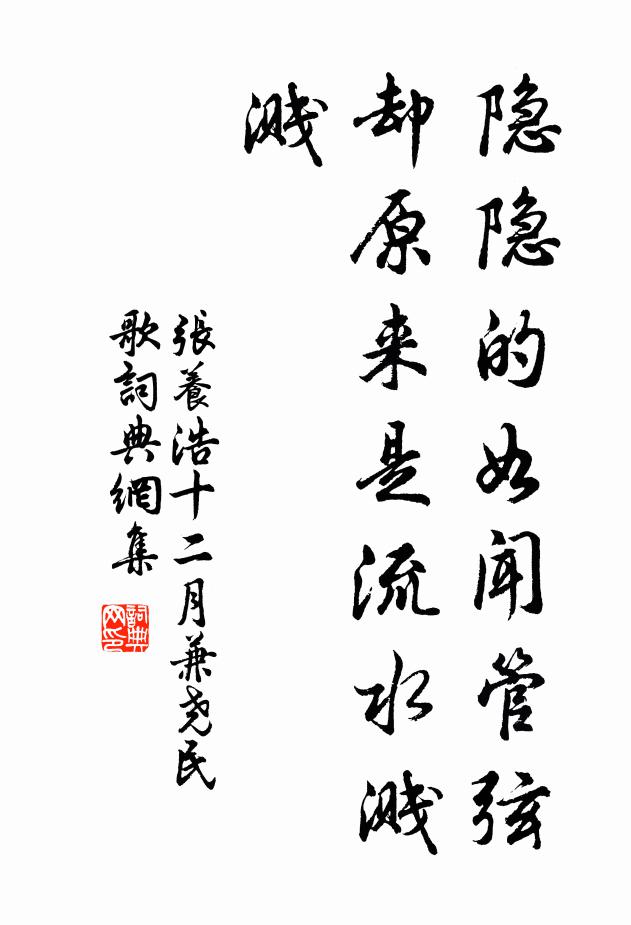 隐隐的如闻管弦
却原来是流水溅
溅
張養浩十二月兼尧民
歌詞典網集
詞典网印